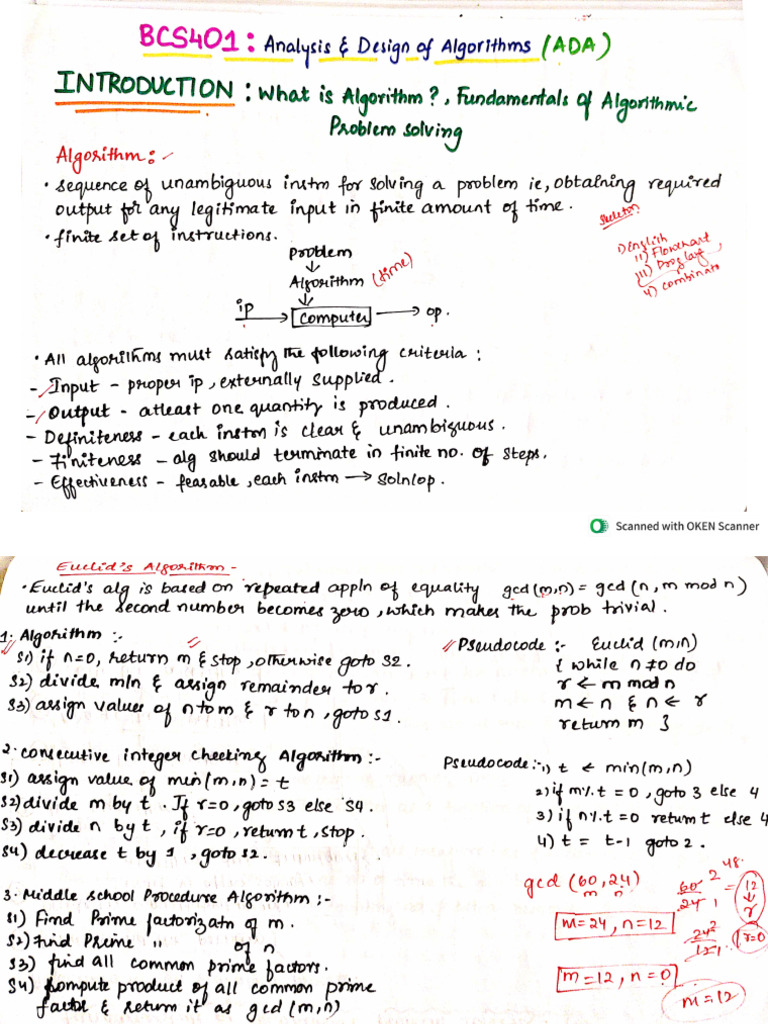 BCS401: Analysis & Design of Algorithms (ADA)
INTRODUCTION: What is Algorithm?, Fundamentals of Algorithmic
Problem solving
Algorithm:-
• sequence of unambiguous instrn for solving a problem ie, obtaining required
output for any legitimate input in finite amount of time.
• finite set of instructions.
skeleton
1) English
ii) Flowchart
iii) Prog lang
4) combinatn
Problem
↓
Algorithm (time)
↓
ip → computer → op.
• All algorithms must satisfy the following criteria :
- Input - proper ip, externally supplied.
- Output - atleast one quantity is produced.
- Definiteness - each instrn is clear & unambiguous.
- Finiteness - alg should terminate in finite no. of steps.
- Effectiveness - feasable, each instrn → soln/op.
Scanned with OKEN Scanner
Euclid's Algorithm -
• Euclid's alg is based on repeated appln of equality gcd(m,n) = gcd(n, m mod n)
until the second number becomes zero, which makes the prob trivial.
1. Algorithm :-
S1) if n=0, return m & stop, otherwise goto S2.
S2) divide m/n & assign remainder to r.
S3) assign values of n to m & r to n, goto S1.
Pseudocode :- Euclid (m,n)
{ while n ≠ 0 do
r ← m mod n
m ← n & n ← r
return m }
2. Consecutive integer checking Algorithm :-
S1) assign value of min(m,n) = t
S2) divide m by t. If r=0, goto S3 else S4.
S3) divide n by t, if r=0, return t, stop.
S4) decrease t by 1, goto S2.
Pseudocode :- 1) t ← min(m,n)
2) if m%t = 0, goto 3 else 4
3) if n%t = 0 return t else 4
4) t = t-1 goto 2.
3. Middle School Procedure Algorithm :-
S1) Find Prime factorizatn of m.
S2) Find Prime " of n.
S3) find all common prime factors.
S4) compute product of all common prime
factor & return it as gcd(m,n)
gcd (60, 24)
m n
m=24, n=12
m=12, n=0
60 2 48
24 1 = 12
↓
r
24 2
12 1 r=0
m=12